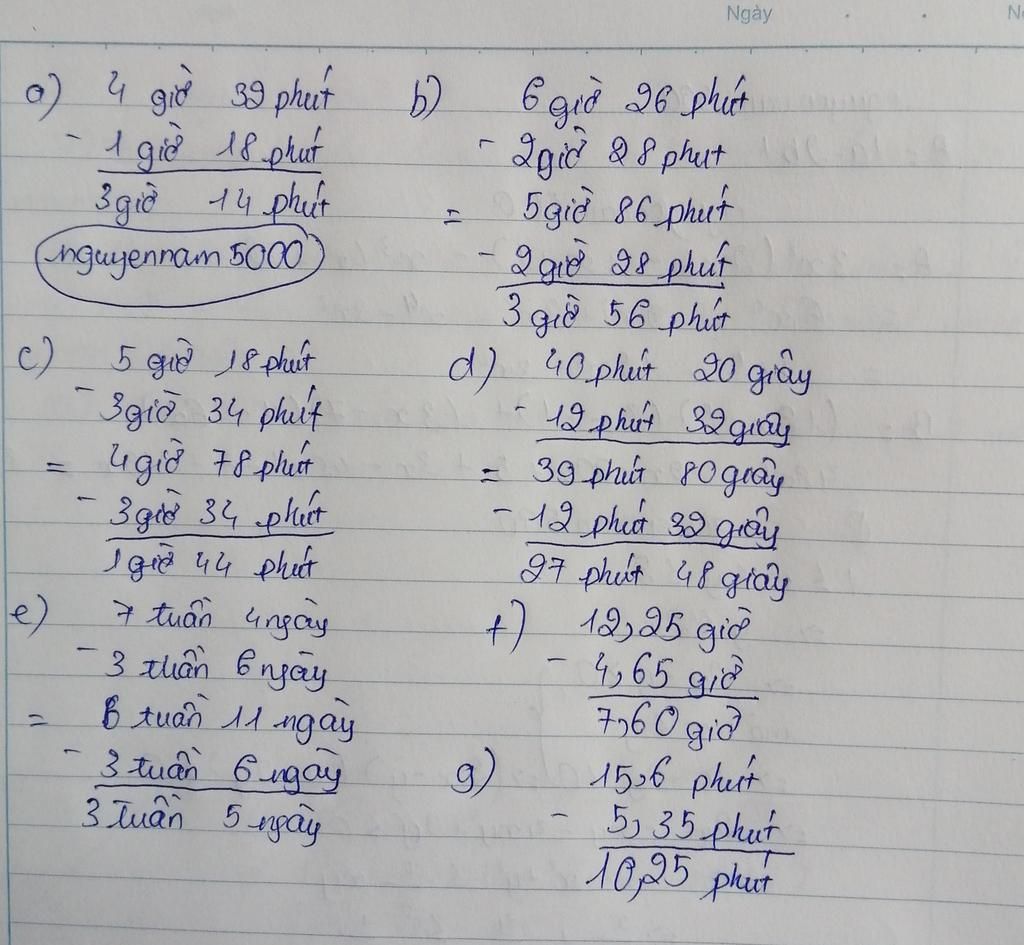 Ngày
a) 4 giờ 32 phút
- 1 giờ 18 phút
3 giờ 14 phút
nguyennam5000
b) 6 giờ 26 phút
- 2 giờ 28 phut
= 5 giờ 86 phút
- 2 giờ 28 phút
3 giờ 56 phút
c) 5 giờ 18 phút
- 3 giờ 34 phút
= 4 giờ 78 phút
- 3 giờ 34 phút
1 giờ 44 phút
d) 40 phút 20 giây
- 12 phút 32 giây
= 39 phút 80 giây
- 12 phút 32 giây
27 phút 48 giây
e) 7 tuần 4 ngày
- 3 tuần 6 ngày
= 6 tuần 11 ngày
- 3 tuần 6 ngày
3 tuần 5 ngày
f) 12,25 giờ
- 4,65 giờ
7,60 giờ
g) 15,6 phút
- 5,35 phút
10,25 phút